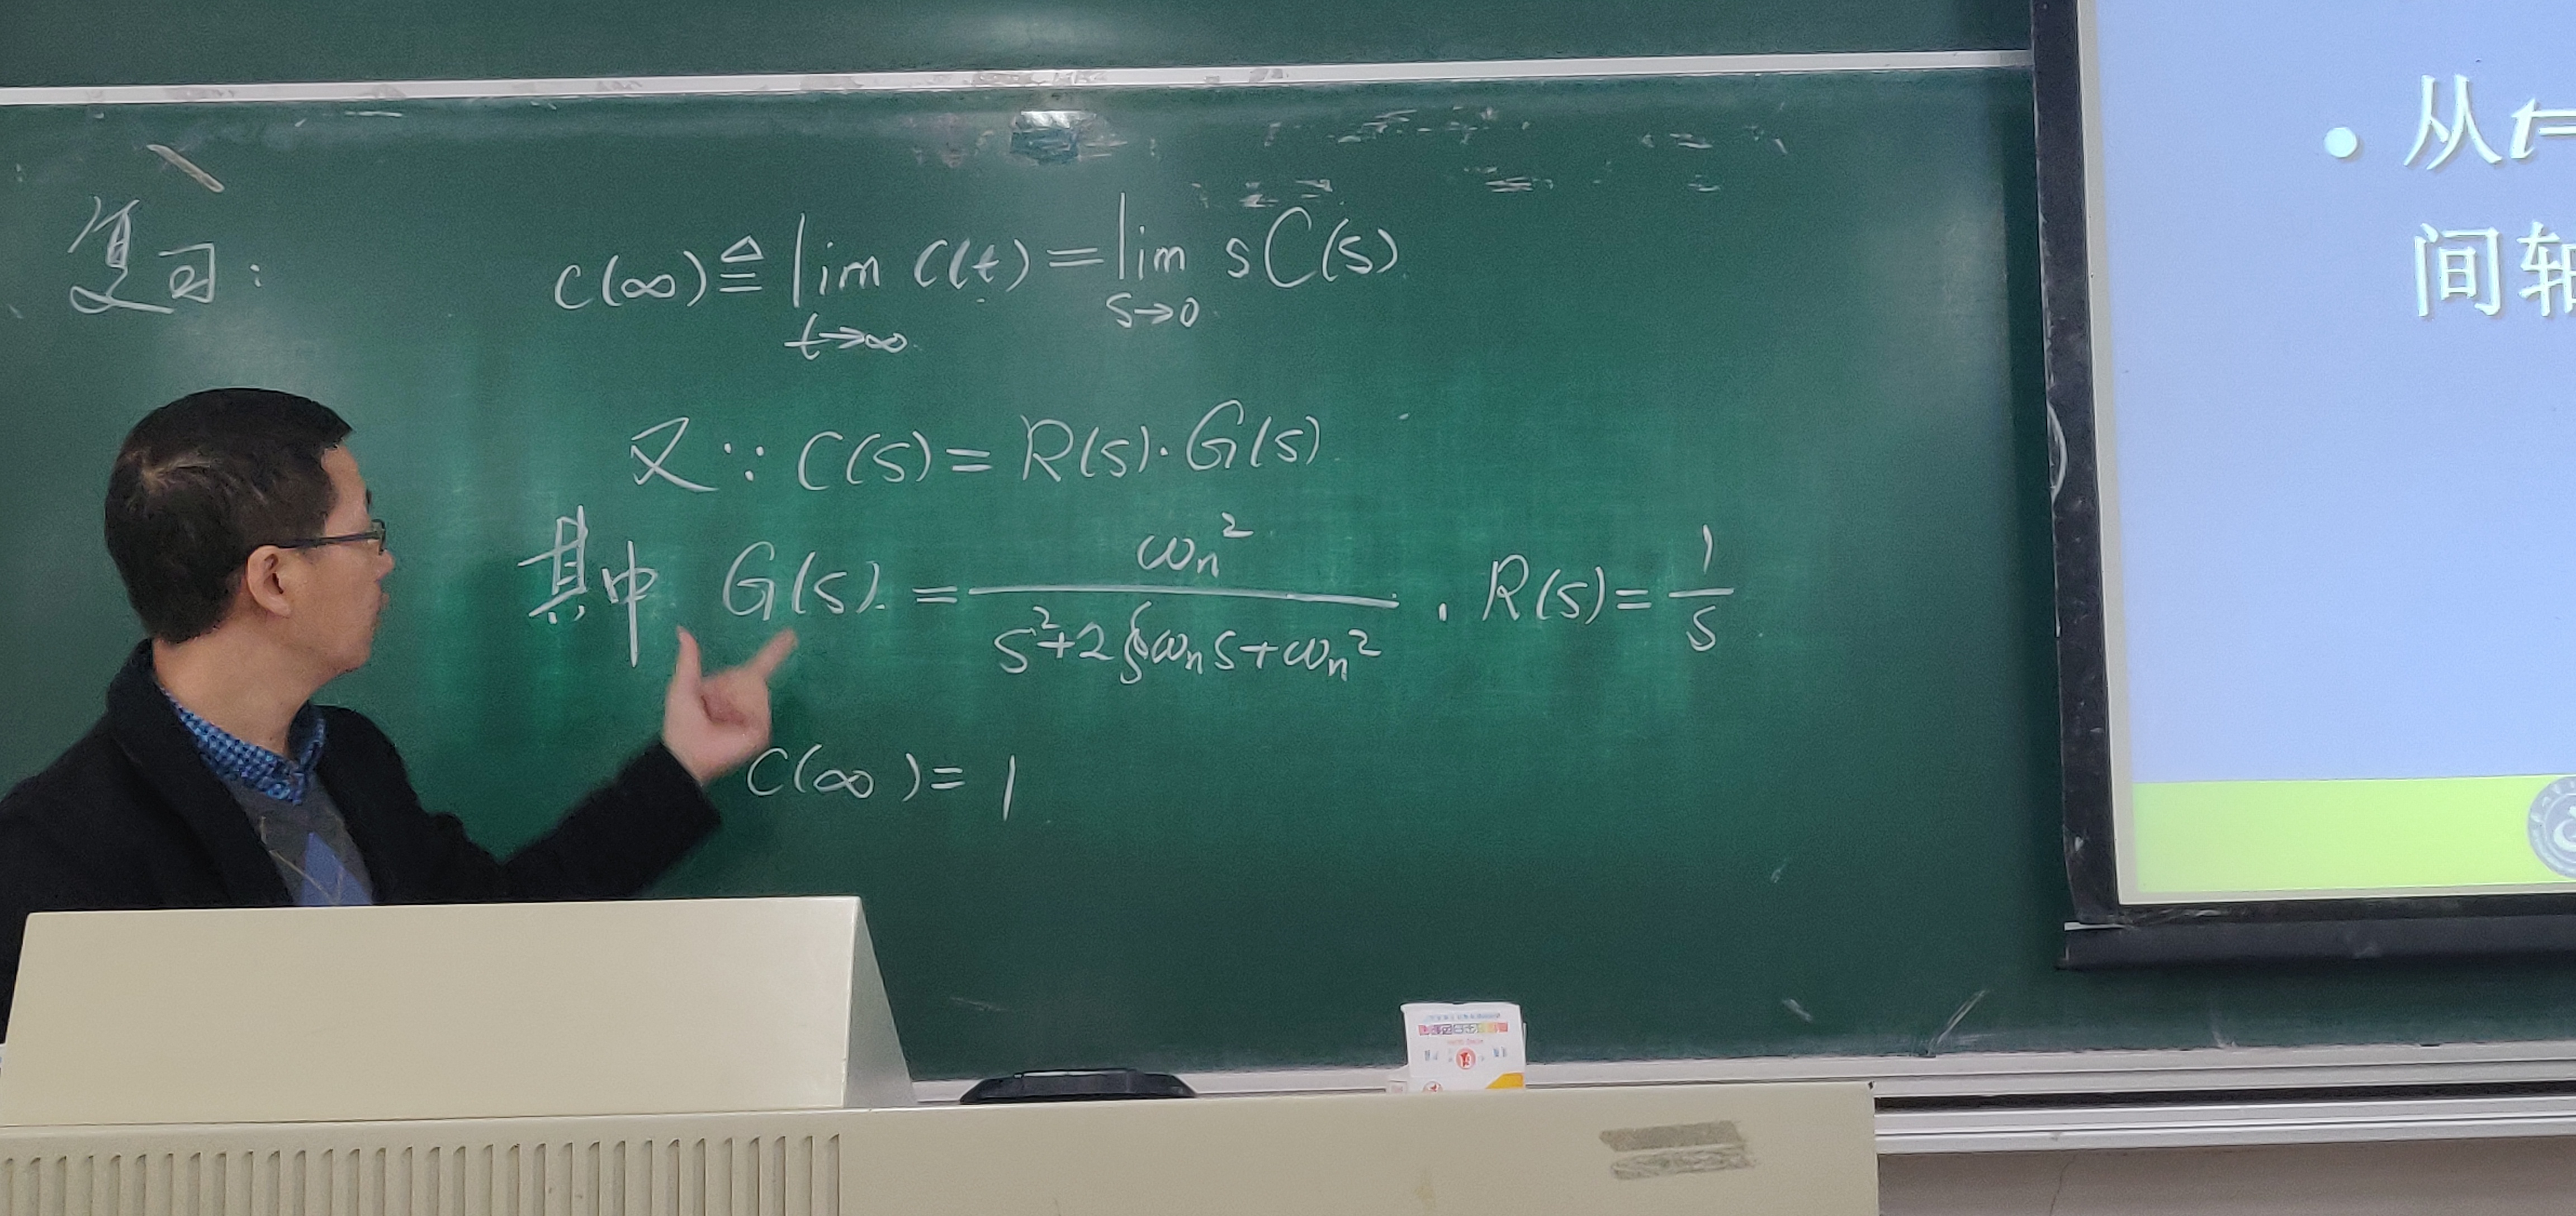 复习：
c(∞) ≜ lim c(t) = lim sC(s)
t→∞ s→0
又∵ C(s) = R(s)·G(s)
其中 G(s) = ωn² / (s²+2ξωns+ωn²) . R(s) = 1/s
C(∞) = 1
• 从t=
间轴